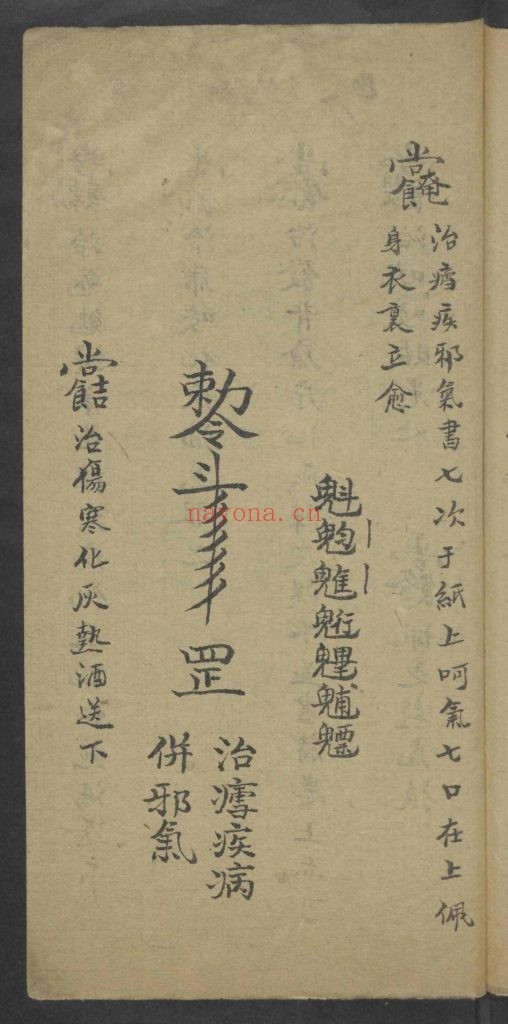 治瘧疾邪氣書七次于紙上呵氣七口在上佩
身衣裏立愈
魁𩲃魋䰢魓魒
勅令斗罡
治瘧疾病
併邪氣
治傷寒化灰熱酒送下
nayona.cn